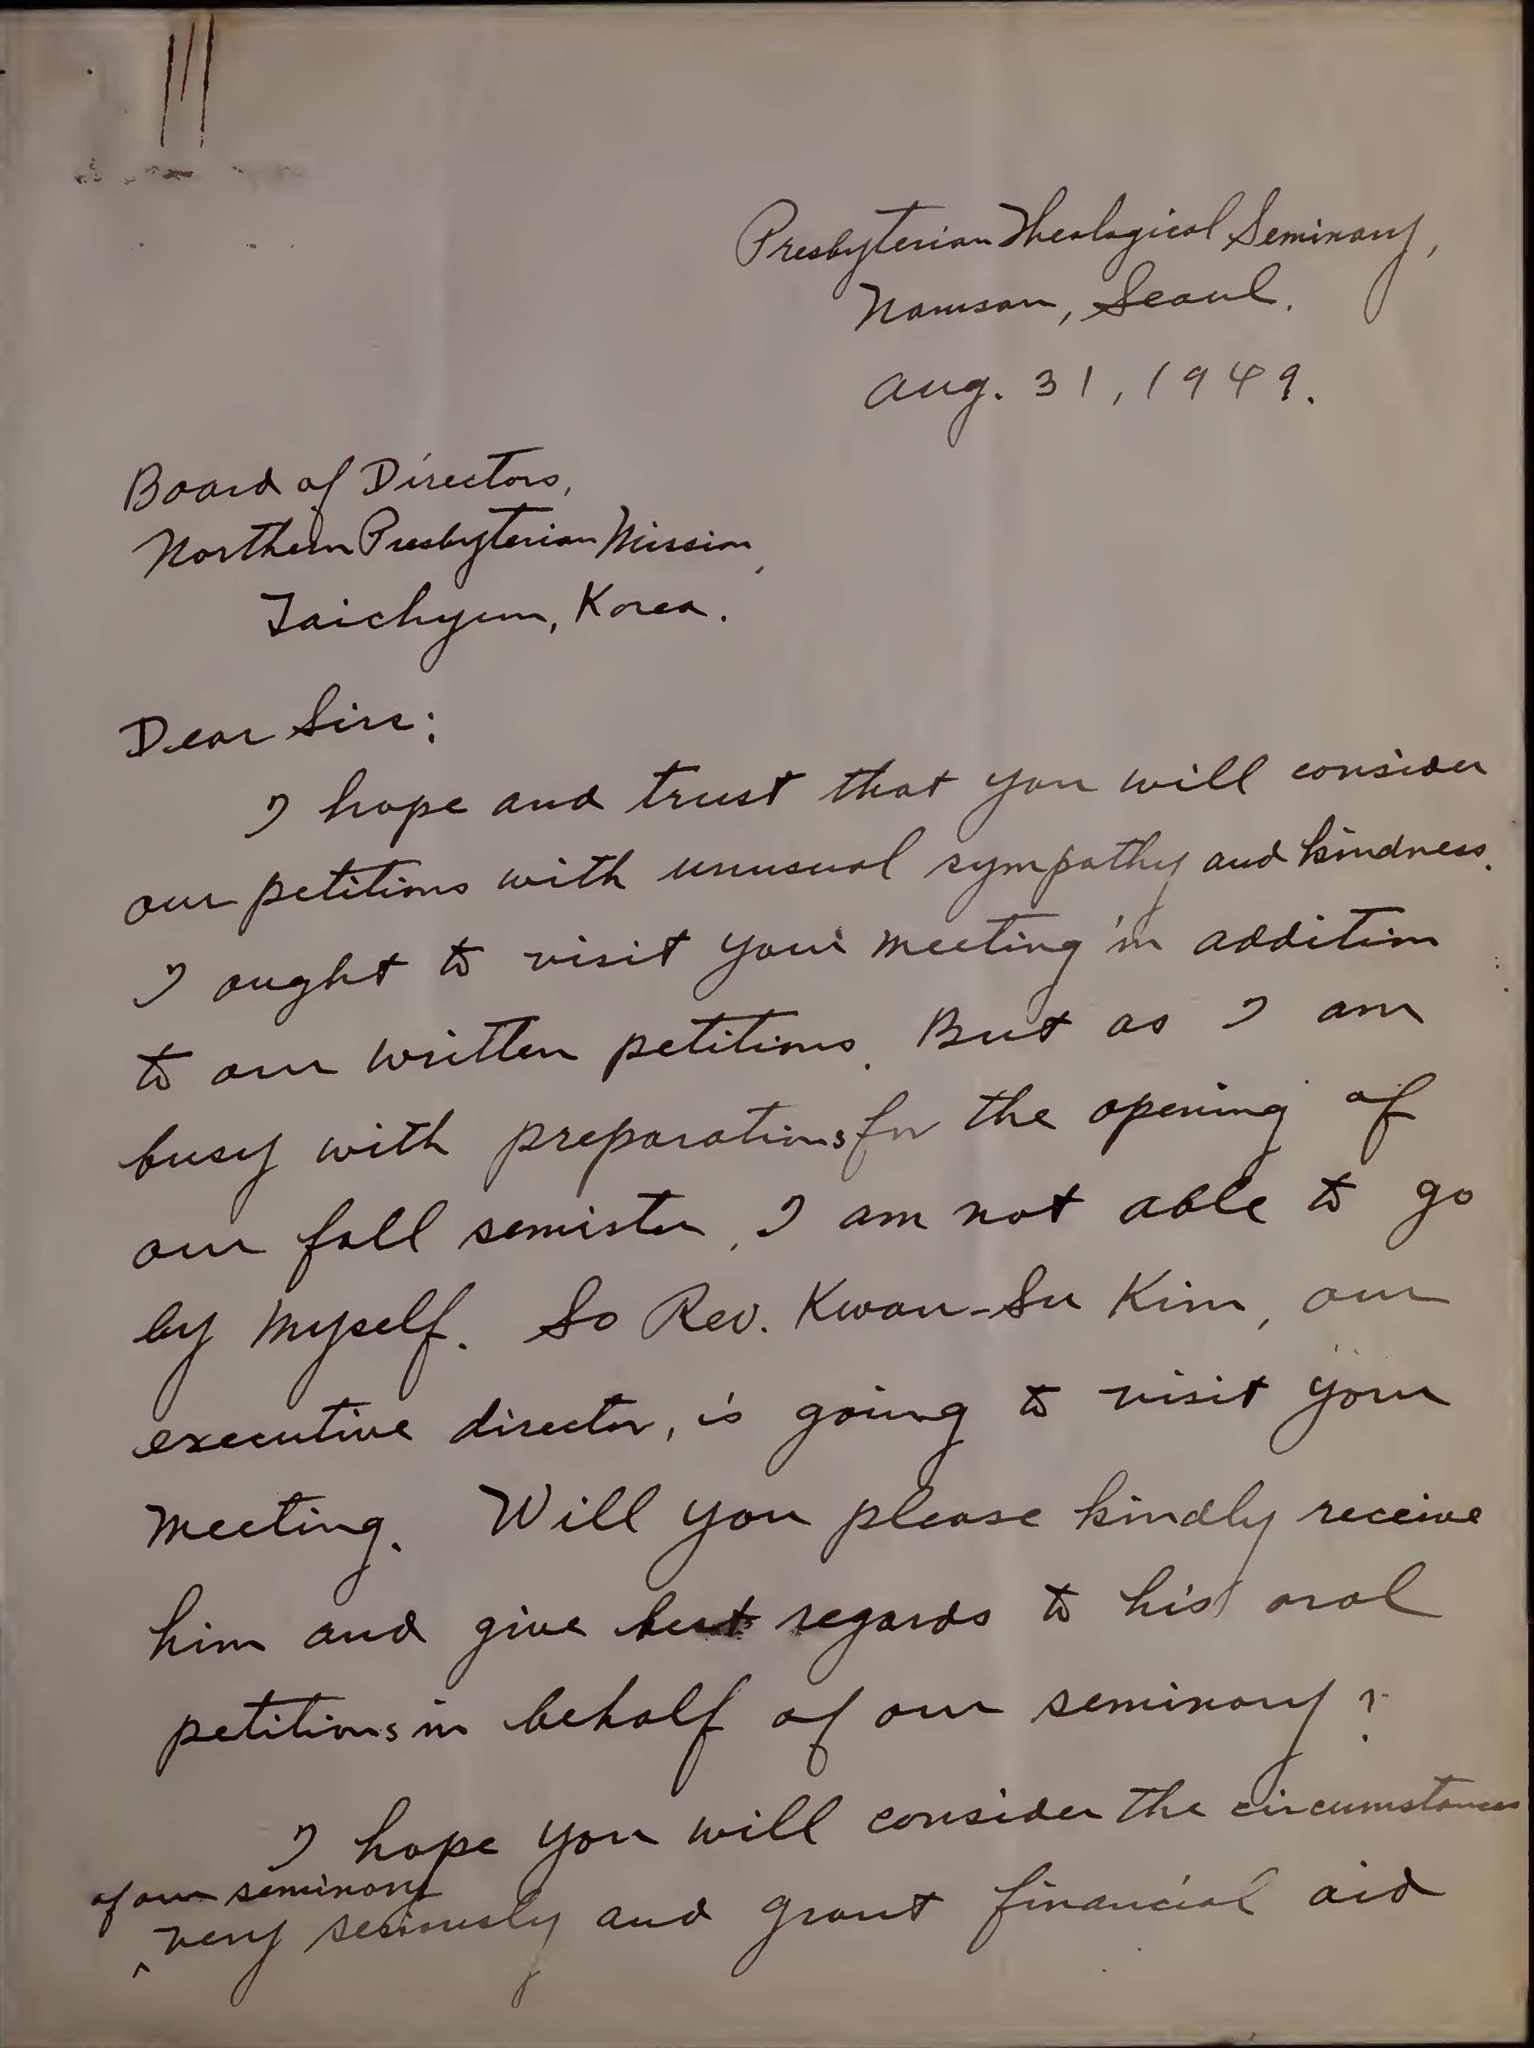 Presbyterian Theological Seminary,
Namsan, Seoul.
Aug. 31, 1949.
Board of Directors,
Northern Presbyterian Mission,
Taichyun, Korea.
Dear Sirs:
I hope and trust that you will consider
our petitions with unusual sympathy and kindness.
I ought to visit your meeting in addition
to our written petitions. But as I am
busy with preparations for the opening of
our fall semister, I am not able to go
by myself. So Rev. Kwan-Su Kim, our
executive director, is going to visit your
meeting. Will you please kindly receive
him and give best regards to his oral
petitions in behalf of our seminary?
I hope you will consider the circumstances
of our seminary
^ very seriously and grant financial aid